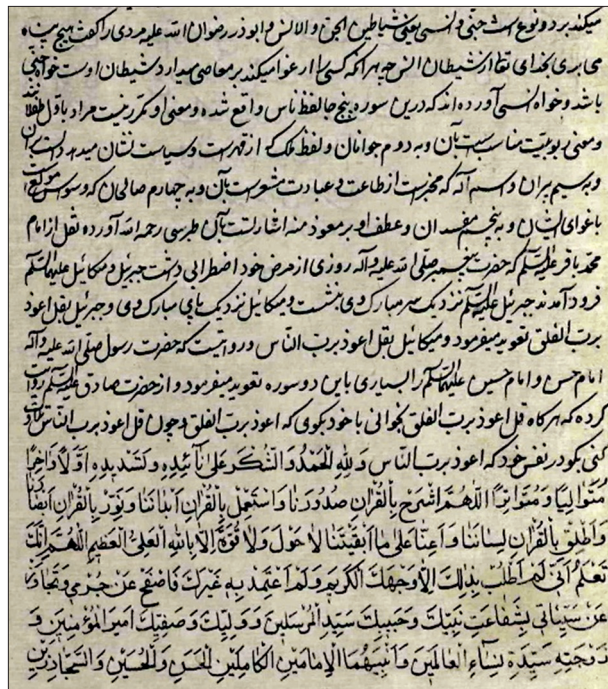 میکند بر دو نوع است جنی و انسی یعنی شیاطین الجن والانس و ابوذر رضوان الله علیه مردی را گفت هیچ پناه
می بری بخدای تعالی از شیطان الانس چه هر که کسی را اغوا میکند بر معاصی میدارد شیطان اوست خواه جنی
باشد و خواه انسی آورده اند که درین سوره پنج جا لفظ ناس واقع شده و معنی او مکرر نیست مراد باول طفلانند
و معنی ربوبیت مناسبست بآن و به دوم جوانان و لفظ ملک که از قهر است و سیاست نشان میدهد دالست بر آن
و به سیم پیران و اسم آله که مخبر است از طاعت و عبادت مشعر است بآن و به چهارم صالحان که وسواس مولع است
باغوای ایشان و به پنجم مفسدان و عطف او بر معوذ منه اشارتست بآن طبرسی رحمه الله آورده نقل از امام
محمد باقر علیه السلم که حضرت پیغمبر صلی الله علیه و آله روزی از مرض خود اضطرابی داشت جبرئیل و میکائیل علیهما السلم
فرود آمدند جبرئیل علیه السلم نزدیک سر مبارک وی بنشست و میکائیل نزدیک پای مبارک وی و جبرئیل بقل اعوذ
برب الفلق تعوید میفرمود و میکائیل بقل اعوذ برب الناس و رواست که حضرت رسول صلی الله علیه و آله
امام حسن و امام حسین علیهما السلم را بسیاری باین دو سوره تعوید میفرمود و از حضرت صادق علیه السلم روایت
کرده که هر کاه قل اعوذ برب الفلق بخوانی با خود بکوی که اعوذ برب الفلق و چون قل اعوذ برب الناس تلاوت
کنی بکو در نفس خود که اعوذ برب الناس وَلِلّٰهِ الْحَمْدُ وَالشُّكْرُ عَلٰى تَائِيْدِهِ وَتَسْدِيْدِهِ اَوَّلًا وَاٰخِرًا
مُتَوَالِيًا وَمُتَوَاتِرًا اَللّٰهُمَّ اشْرَحْ بِالْقُرْاٰنِ صُدُوْرَنَا وَاسْتَعْمِلْ بِالْقُرْاٰنِ اَبْدَانَنَا وَنَوِّرْ بِالْقُرْاٰنِ اَبْصَارَنَا
وَاَطْلِقْ بِالْقُرْاٰنِ لِسَانَنَا وَاَعِنَّا عَلٰى مَا اَبْقَيْتَنَا لَاحَوْلَ وَلَا قُوَّةَ اِلَّا بِاللّٰهِ الْعَلِيِّ الْعَظِيْمِ اَللّٰهُمَّ اِنَّكَ
تَعْلَمُ اَنِّى لَمْ اَطْلُبْ بِذٰلِكَ اِلَّا وَجْهَكَ الْكَرِيْمَ وَلَمْ اَعْتَمِدْ بِهِ غَيْرَكَ فَاصْفَحْ عَنْ جُرْمِى وَتَجَاوَزْ
عَنْ سَيِّئَاتِى بِشَفَاعَتِ نَبِيِّكَ وَحَبِيْبِكَ سَيِّدِ الْمُرْسَلِيْنَ وَوَلِيِّكَ وَصَفِيِّكَ اَمِيْرِ الْمُؤْمِنِيْنَ وَ
زَوْجَتِهِ سَيِّدَةِ نِسَاءِ الْعَالَمِيْنَ وَابْنَيْهِمَا الْاِمَامَيْنِ الْكَامِلَيْنِ الْحَسَنِ وَالْحُسَيْنِ وَالسَّجَّادِيْنِ